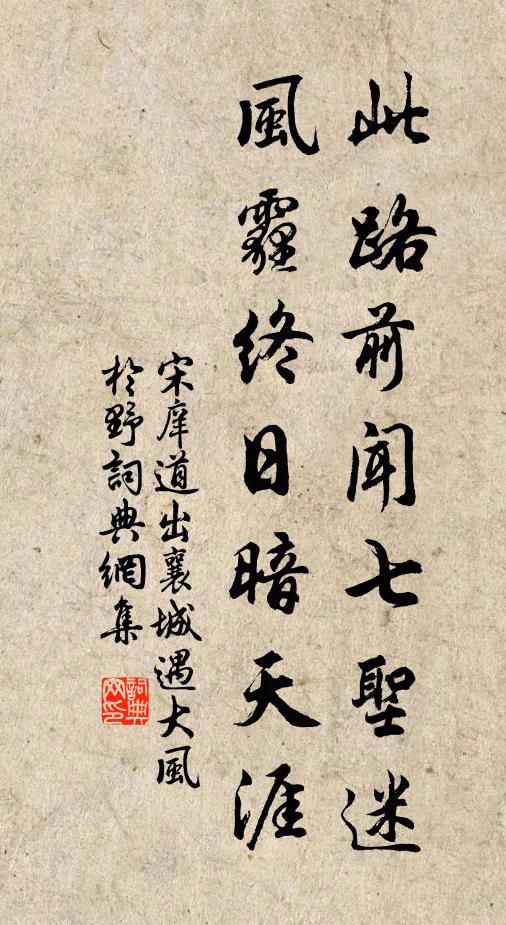 此路前聞七聖迷
風霾終日暗天涯
宋庠道出襄城遇大風
於野詞典網集
詞典網印